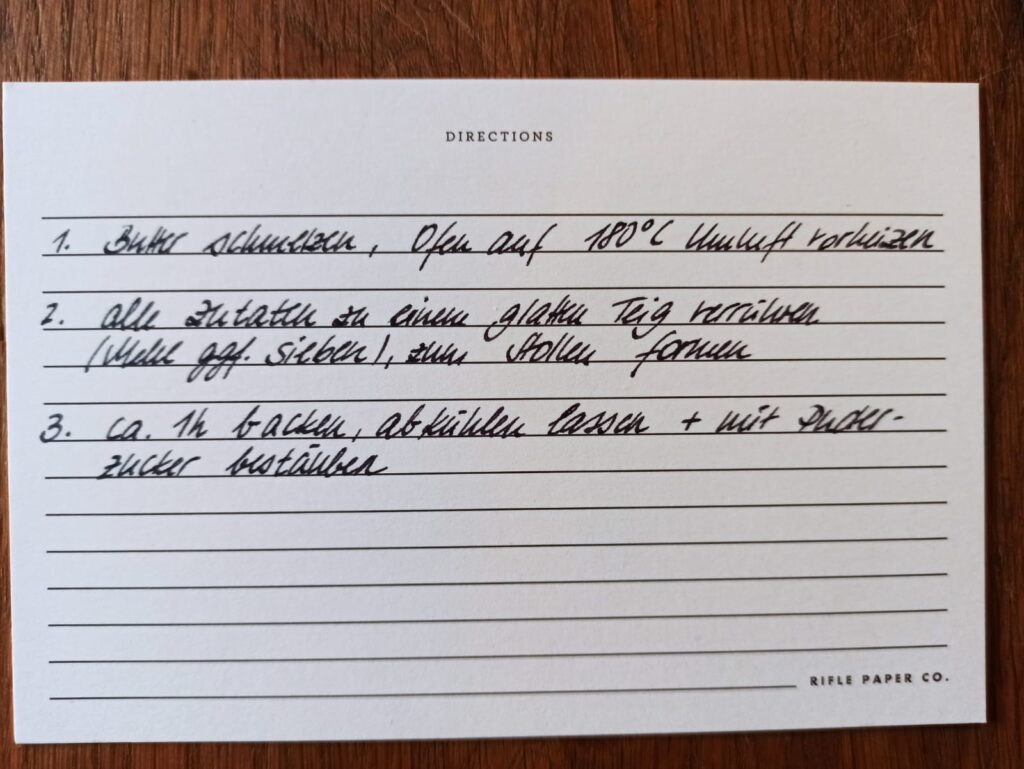 DIRECTIONS
1. Butter schmelzen, Ofen auf 180°C Umluft vorheizen
2. alle Zutaten zu einem glatten Teig verrühren
(Mehl ggf. sieben), zum Stollen formen
3. ca. 1h backen, abkühlen lassen + mit Puder-
zucker bestäuben
RIFLE PAPER CO.